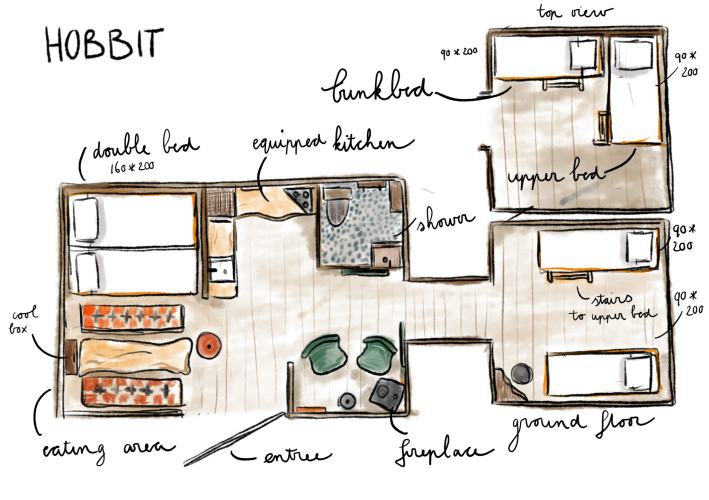 HOBBIT
top view
90 * 200
90 *
200
bunkbed
double bed
160 * 200
equipped kitchen
upper bed
shower
90 *
200
stairs
to upper bed
90 *
200
cool
box
eating area
entree
fireplace
ground floor